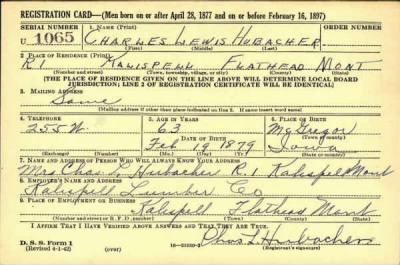 REGISTRATION CARD—(Men born on or after April 28, 1877 and on or before February 16, 1897)
SERIAL NUMBER
1. NAME (Print)
ORDER NUMBER
U 1065
CHARLES LEWIS HUBACHER
(First) (Middle) (Last)
2. PLACE OF RESIDENCE (Print)
R1 KALISPELL FLATHEAD MONT
(Number and street) (Town, township, village, or city) (County) (State)
[THE PLACE OF RESIDENCE GIVEN ON THE LINE ABOVE WILL DETERMINE LOCAL BOARD JURISDICTION; LINE 2 OF REGISTRATION CERTIFICATE WILL BE IDENTICAL]
3. MAILING ADDRESS
Same
[Mailing address if other than place indicated on line 2. If same insert word same]
4. TELEPHONE
5. AGE IN YEARS
6. PLACE OF BIRTH
255 W.
63
McGregor
DATE OF BIRTH
(Town or county)
Feb 19 1879
Iowa
(Exchange) (Number)
(Mo.) (Day) (Yr.)
(State or country)
7. NAME AND ADDRESS OF PERSON WHO WILL ALWAYS KNOW YOUR ADDRESS
Mrs Chas L. Hubacher R.1 Kalispell Mont
8. EMPLOYER'S NAME AND ADDRESS
Kalispell Lumber Co
9. PLACE OF EMPLOYMENT OR BUSINESS
Kalispell Flathead Mont
(Number and street or R. F. D. number) (Town) (County) (State)
I AFFIRM THAT I HAVE VERIFIED ABOVE ANSWERS AND THAT THEY ARE TRUE.
D. S. S. Form 1
(Revised 4-1-42) (over)
Chas L Hubacher
(Registrant's signature)